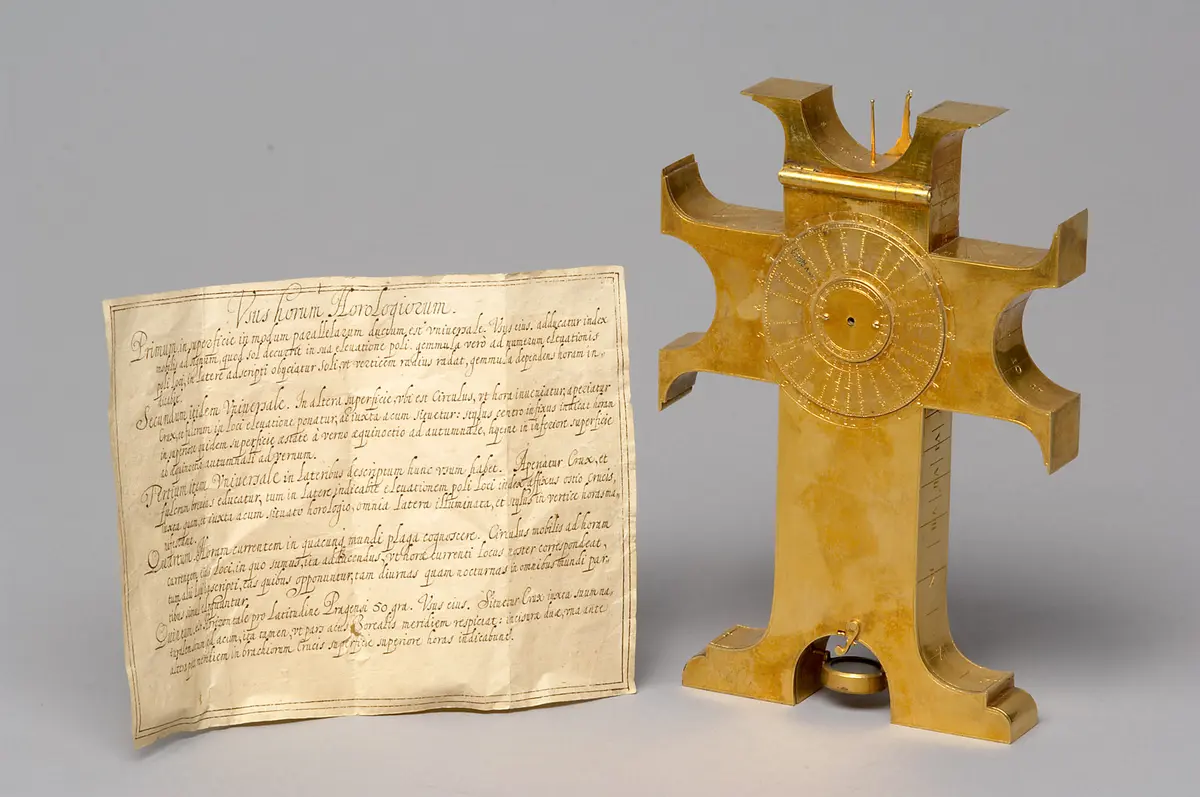 Vsus horum Horologiorum.
Primum in superficie in modum parallelarum ductum est vniuersale. Vsus eius. adducatur index
mobilis ad signum, quod sol decurrit in sua eleuatione poli. gemmula verò ad numerum eleuationis
poli loci, in latere adscripti obijciatur Soli, vt verticem radius radat, gemmula dependens horam in-
Secundum itidem Vniuersale. In altera superficie, vbi est Circulus, vt hora inueniatur, aperiatur
Crux, et fulcrum in loci eleuatione ponatur, ac iuxta acum situetur: stylus centro infixus indicat horam
in superiore quidem superficie æstate à verno æquinoctio ad autumnale, hyeme in inferiori superficie
ab æquinoctio autumnali ad vernum.
Tertium item Vniuersale in Lateribus descriptum hunc vsum habet. Aperiatur Crux, et
fulcrum breuius educatur, tum in Latere indicabit eleuationem poli loci index affixus ostio crucis,
iuxta quem, et iuxta acum situato horologio, omnia Latera illuminata, et stylus in vertice horas mon-
Quartum. Horam currentem in quacunq mundi plaga cognoscere. Circulus mobilis ad horam
currentem loci, in quo sumus, ita adducendus, vt horæ currenti Locus noster correspondeat,
tum alij Loci adscripti, eas quibus opponuntur, tam diurnas quam nocturnas in omnibus mundi par-
tibus simul
Quintum est horizontale pro Latitudine Pragensi 50 gra. Vsus eius. Situetur Crux iuxta suum na-
acum, ita tamen, vt pars acus Borealis meridiem respiciat: incisuræ duæ, vna ante
altera in brachiorum Crucis superficie superiore horas indicabunt.